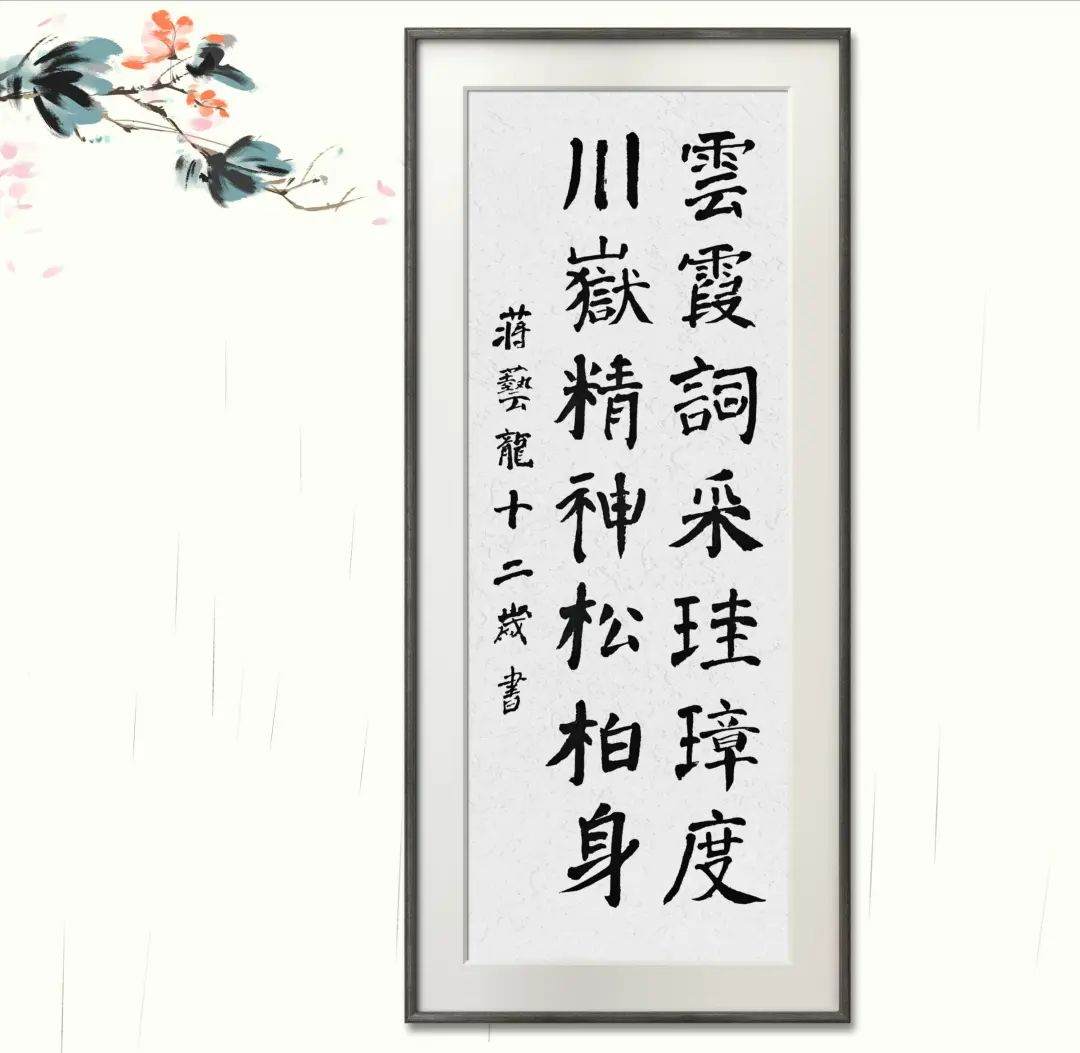 雲霞詞采珪璋度
川嶽精神松柏身
蔣藝龍十二歲書